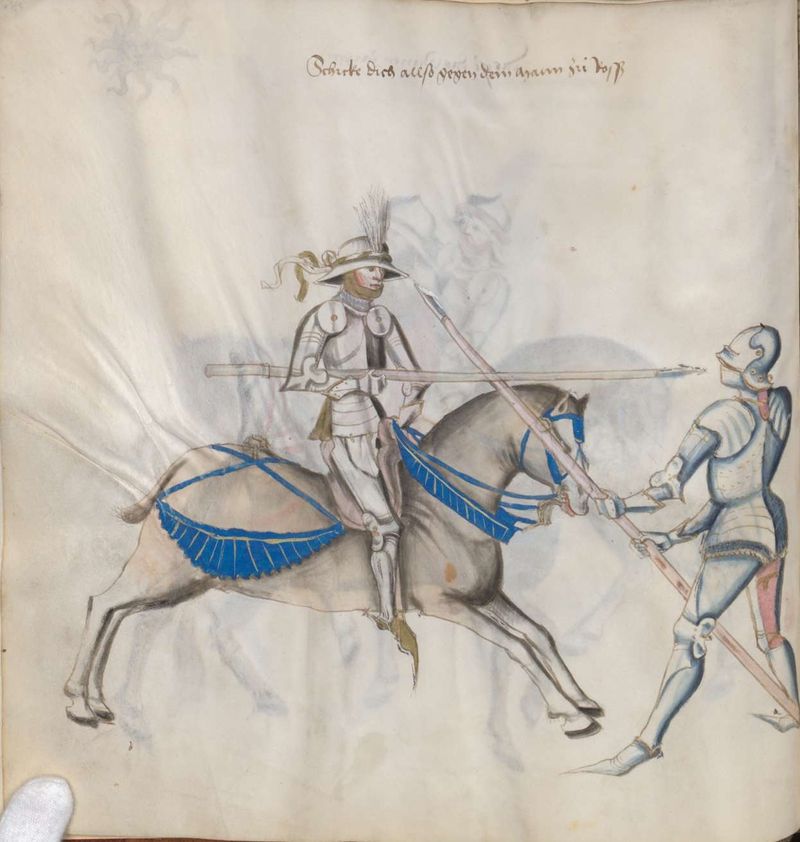 Schicke dich allso gegen dem mann zü Ross